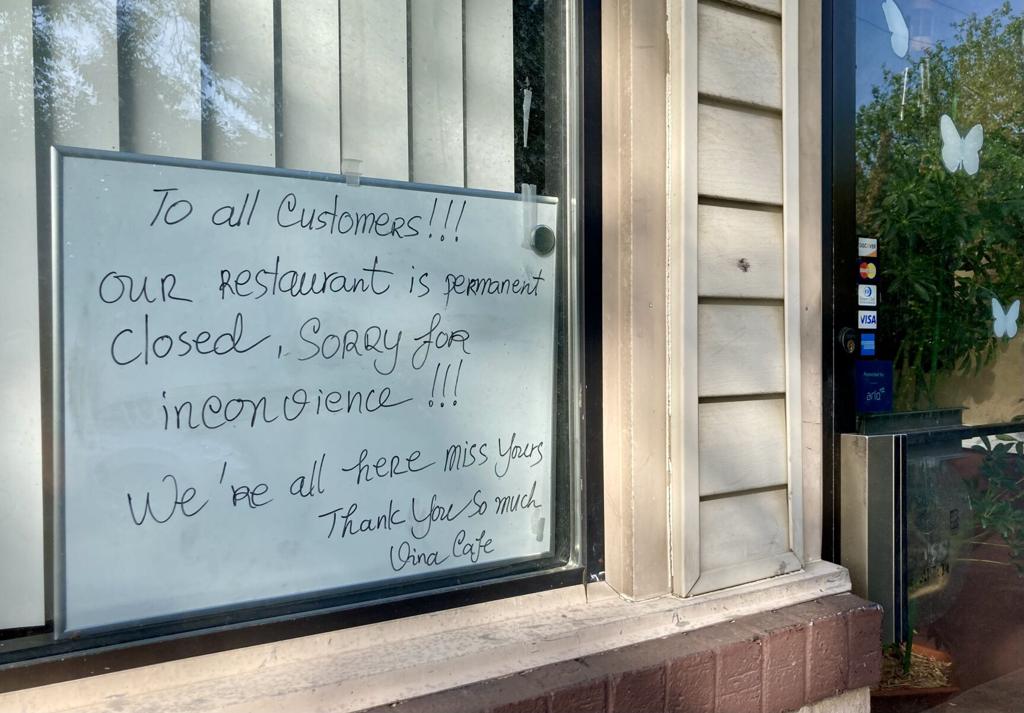 To all Customers!!!
OUR Restaurant is permanent
Closed, SORRY for
inconvience !!!
We're all here miss Yours
Thank You So much
Vina Cafe
DISCOVER
VISA